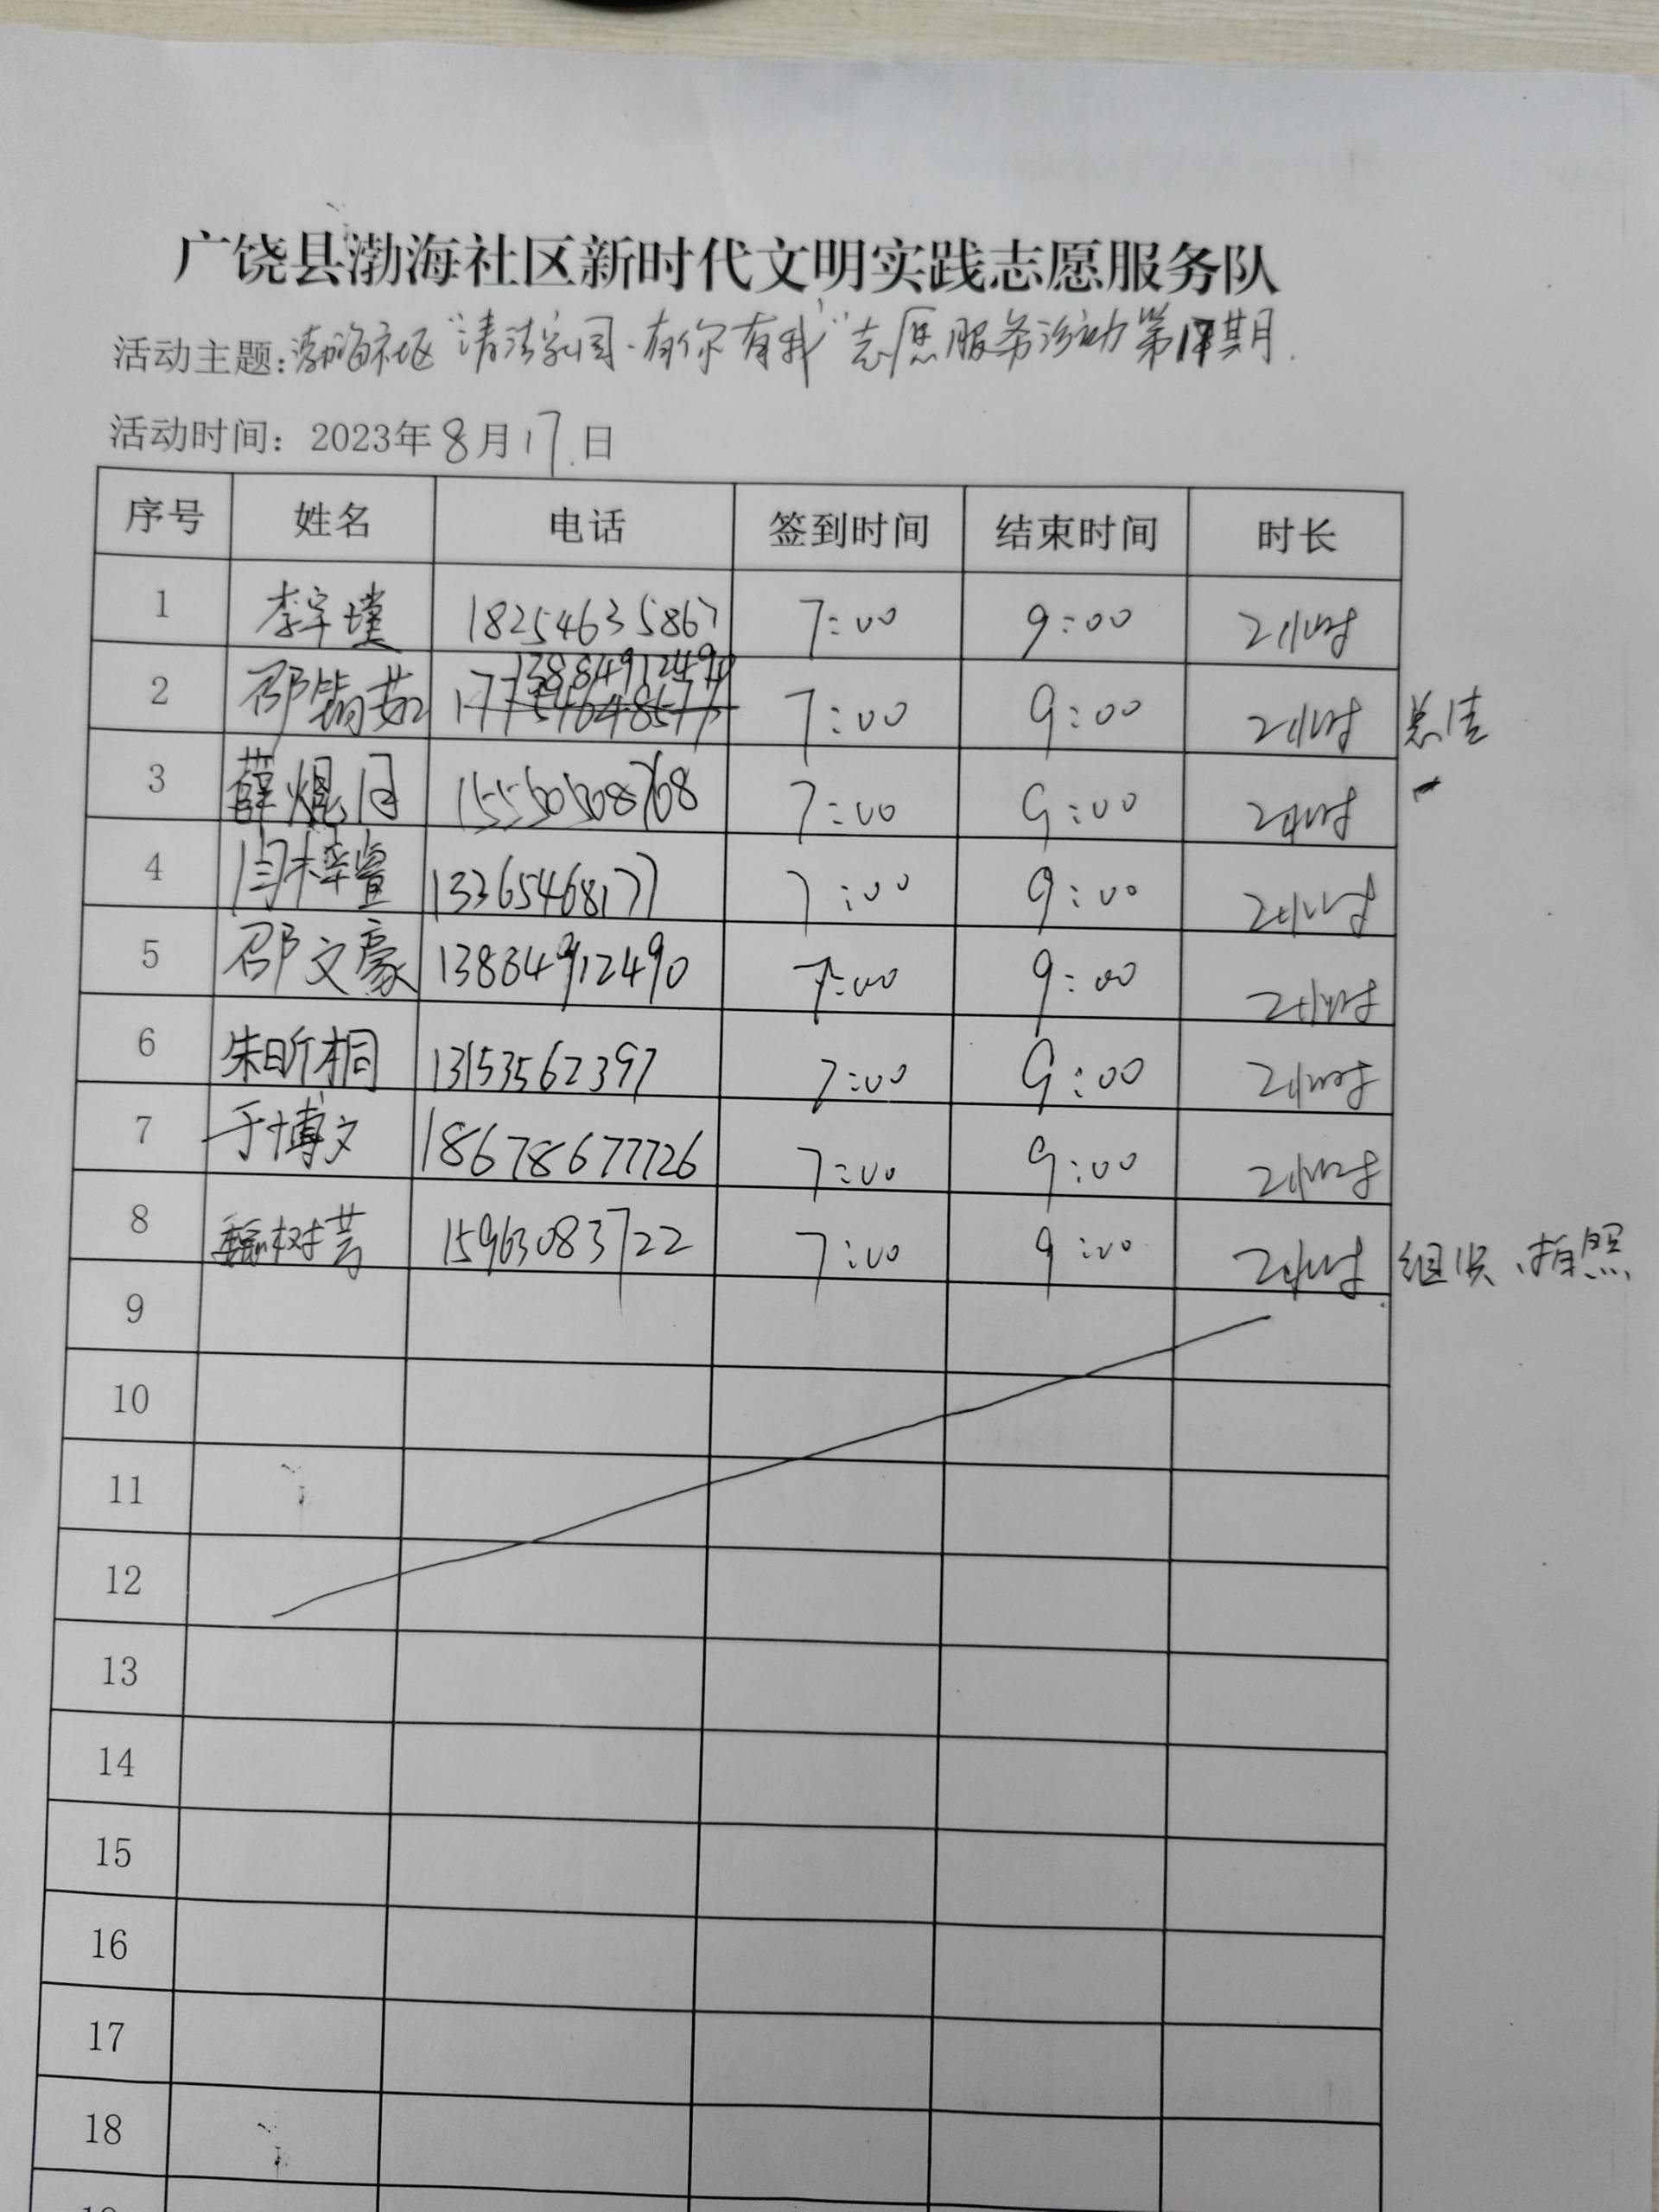 广饶县渤海社区新时代文明实践志愿服务队
活动主题：渤海社区“清洁家园·有你有我”志愿服务活动第17期
活动时间：2023年8月17日
序号 姓名 电话 签到时间 结束时间 时长
1 李宇璞 18254635867 7:00 9:00 2小时
13884912490
2 邵锦茹 7:00 9:00 2小时 总结
3 薛焜月 15550508768 7:00 9:00 2小时
4 闫梓萱 13365468177 7:00 9:00 2小时
5 邵文豪 13884912490 7:00 9:00 2小时
6 朱昕桐 13153562397 7:00 9:00 2小时
7 于博文 18678677726 7:00 9:00 2小时
8 魏树芸 15963083722 7:00 9:00 2小时 组织、拍照
9
10
11
12
13
14
15
16
17
18